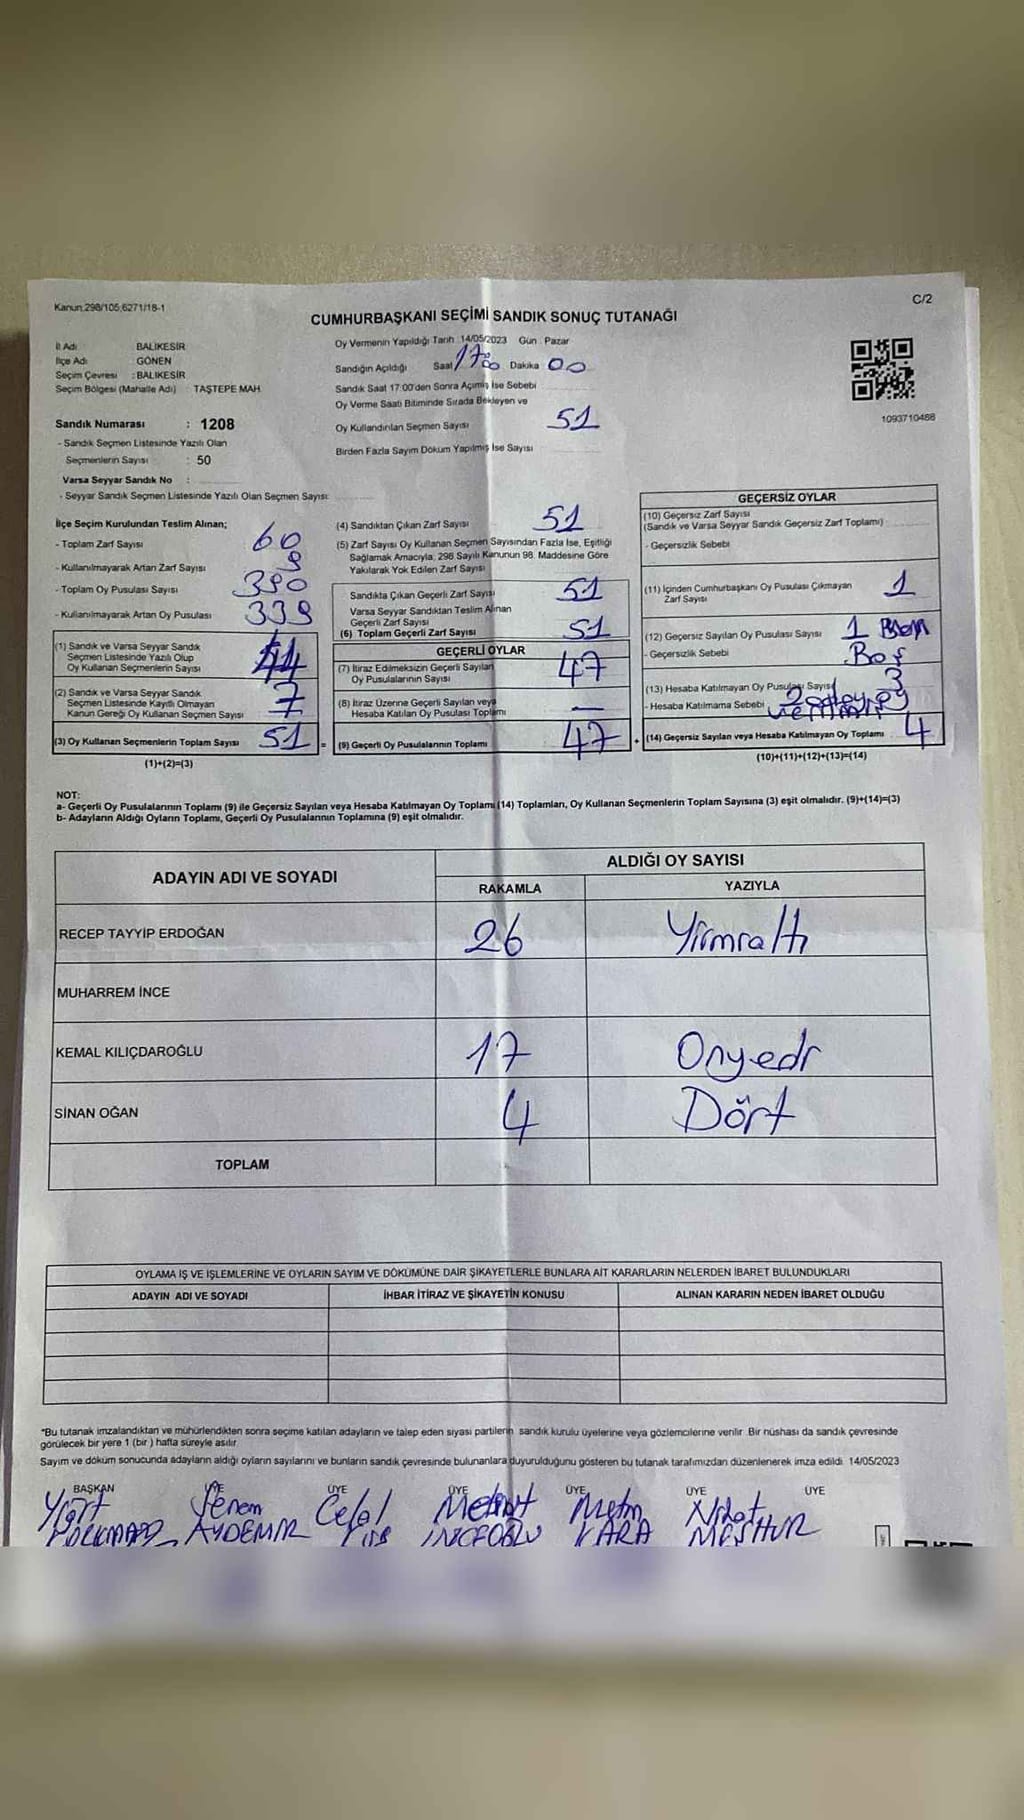 Kanun 298/105,6271/18-1
C/2
CUMHURBAŞKANI SEÇİMİ SANDIK SONUÇ TUTANAĞI
İl Adı BALIKESİR
İlçe Adı GÖNEN
Seçim Çevresi : BALIKESİR
Seçim Bölgesi (Mahalle Adı) : TAŞTEPE MAH.
Oy Vermenin Yapıldığı Tarih : 14/05/2023 Gün : Pazar
Sandığın Açıldığı Saat Dakika 00
Sandık Saat 17:00'den Sonra Açımış İse Sebebi
Oy Verme Saati Bitiminde Sırada Bekleyen ve
Oy Kullandırılan Seçmen Sayısı 51
Birden Fazla Sayım Döküm Yapılmış İse Sayısı
1093710488
Sandık Numarası : 1208
- Sandık Seçmen Listesinde Yazılı Olan
Seçmenlerin Sayısı : 50
Varsa Seyyar Sandık No :
- Seyyar Sandık Seçmen Listesinde Yazılı Olan Seçmen Sayısı:
İlçe Seçim Kurulundan Teslim Alınan;
- Toplam Zarf Sayısı 60
- Kullanılmayarak Artan Zarf Sayısı 9
- Toplam Oy Pusulası Sayısı 390
- Kullanılmayarak Artan Oy Pusulası 339
(1) Sandık ve Varsa Seyyar Sandık
Seçmen Listesinde Yazılı Olup
Oy Kullanan Seçmenlerin Sayısı 44
(2) Sandık ve Varsa Seyyar Sandık
Seçmen Listesinde Kayıtlı Olmayan
Kanun Gereği Oy Kullanan Seçmen Sayısı 7
(3) Oy Kullanan Seçmenlerin Toplam Sayısı 51 =
(1)+(2)=(3)
(4) Sandıktan Çıkan Zarf Sayısı 51
(5) Zarf Sayısı Oy Kullanan Seçmen Sayısından Fazla İse, Eşitliği
Sağlamak Amacıyla; 298 Sayılı Kanunun 98. Maddesine Göre
Yakılarak Yok Edilen Zarf Sayısı
Sandıkta Çıkan Geçerli Zarf Sayısı 51
Varsa Seyyar Sandıktan Teslim Alınan
Geçerli Zarf Sayısı
(6) Toplam Geçerli Zarf Sayısı 51
GEÇERLİ OYLAR
(7) İtiraz Edilmeksizin Geçerli Sayılan
Oy Pusulalarının Sayısı 47
(8) İtiraz Üzerine Geçerli Sayılan veya
Hesaba Katılan Oy Pusulası Toplamı —
(9) Geçerli Oy Pusulalarının Toplamı 47 +
GEÇERSİZ OYLAR
(10) Geçersiz Zarf Sayısı
(Sandık ve Varsa Seyyar Sandık Geçersiz Zarf Toplamı)
- Geçersizlik Sebebi
(11) İçinden Cumhurbaşkanı Oy Pusulası Çıkmayan
Zarf Sayısı 1
(12) Geçersiz Sayılan Oy Pusulası Sayısı 1
- Geçersizlik Sebebi Boş
(13) Hesaba Katılmayan Oy Pusulası Sayısı
- Hesaba Katılmama Sebebi
(14) Geçersiz Sayılan veya Hesaba Katılmayan Oy Toplamı 4
(10)+(11)+(12)+(13)=(14)
NOT:
a- Geçerli Oy Pusulalarının Toplamı (9) ile Geçersiz Sayılan veya Hesaba Katılmayan Oy Toplamı (14) Toplamları, Oy Kullanan Seçmenlerin Toplam Sayısına (3) eşit olmalıdır. (9)+(14)=(3)
b- Adayların Aldığı Oyların Toplamı, Geçerli Oy Pusulalarının Toplamına (9) eşit olmalıdır.
ADAYIN ADI VE SOYADI
ALDIĞI OY SAYISI
RAKAMLA YAZIYLA
RECEP TAYYİP ERDOĞAN 26 Yirmialtı
MUHARREM İNCE
KEMAL KILIÇDAROĞLU 17 Onyedi
SİNAN OĞAN 4 Dört
TOPLAM
OYLAMA İŞ VE İŞLEMLERİNE VE OYLARIN SAYIM VE DÖKÜMÜNE DAİR ŞİKAYETLERLE BUNLARA AİT KARARLARIN NELERDEN İBARET BULUNDUKLARI
ADAYIN ADI VE SOYADI İHBAR İTİRAZ VE ŞİKAYETİN KONUSU ALINAN KARARIN NEDEN İBARET OLDUĞU
*Bu tutanak imzalandıktan ve mühürlendikten sonra seçime katılan adayların ve talep eden siyasi partilerin sandık kurulu üyelerine veya gözlemcilerine verilir. Bir nüshası da sandık çevresinde
görülecek bir yere 1 (bir) hafta süreyle asılır.
Sayım ve döküm sonucunda adayların aldığı oyların sayılarını ve bunların sandık çevresinde bulunanlara duyurulduğunu gösteren bu tutanak tarafımızdan düzenlenerek imza edildi. 14/05/2023
BAŞKAN ÜYE ÜYE ÜYE ÜYE ÜYE
Senem Celal Mehmet Metin Nihat
AYDEMİR İNCEOĞLU KARA MEŞHUR